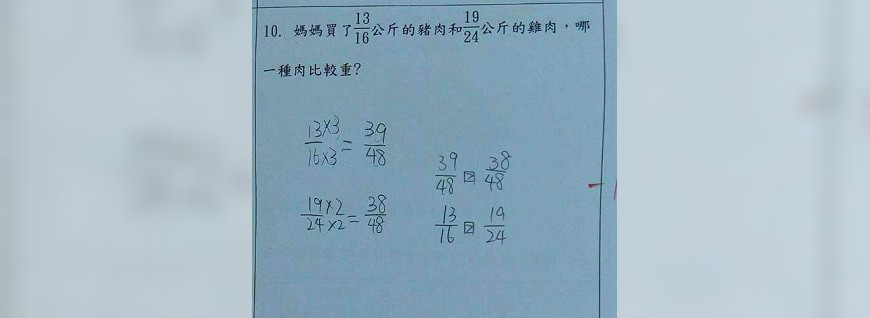 10. 媽媽買了13/16公斤的豬肉和19/24公斤的雞肉，哪
一種肉比較重?
13×3/16×3 = 39/48
19×2/24×2 = 38/48
39/48 > 38/48
13/16 > 19/24